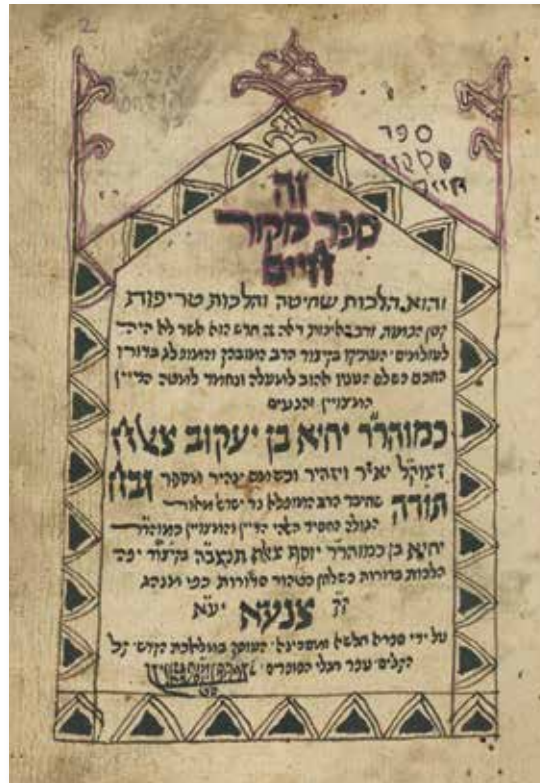 2
ספר
מקור
חיים
זה
ספר מקור
חיים
והוא הלכות שחיטה והלכות טריפות
קטן הכמות ורב האיכות ראה זה חדש הוא אשר לא היה
לעולמים העתיקו בקיצור הרב המובהק והמופלג בדורו
החכם השלם הענו אהוב למעלה ונחמד למטה הדיין
המצויין והנעים
כמוהר״ר יחיא בן יעקב צאלח
זצוק״ל יאיר ויזהיר וכשמש יבהיר מספר זבח
תודה שחיבר הרב המופלא נר ישראל מאור
הגולה החסיד האי הדיין והמצויין כמוהר״ר
יחיא בן כמוהר״ר יוסף צאלח תנצב״ה בקיצור יפה
הלכות ברורות כשלחן הטהור סדורות כפי מנהג
ק״ק צנעא יע״א
על ידי ספרא חלשא ומסכינא העוסק במלאכת הקדש קל
הקלים עפר רגלי הסופרים